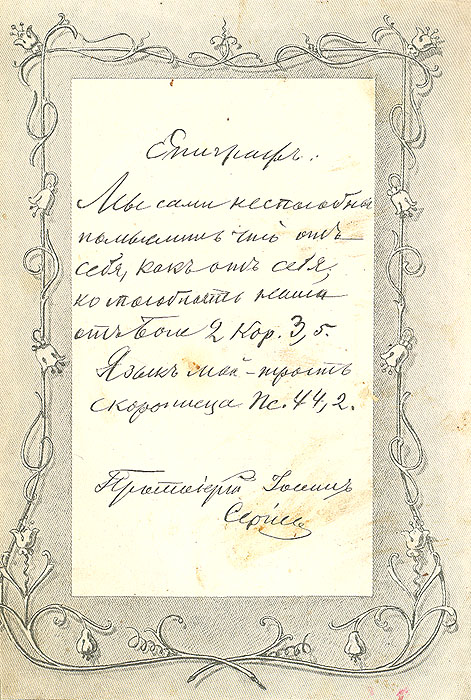 Эпиграфъ:
Мы сами неспособны
помыслить что отъ
себя, какъ отъ себя,
но способность наша
отъ Бога 2 Кор. 3, 5.
Языкъ мой – трость
скорописца Пс. 44, 2.
Протоіерей Іоаннъ
Сергіевъ